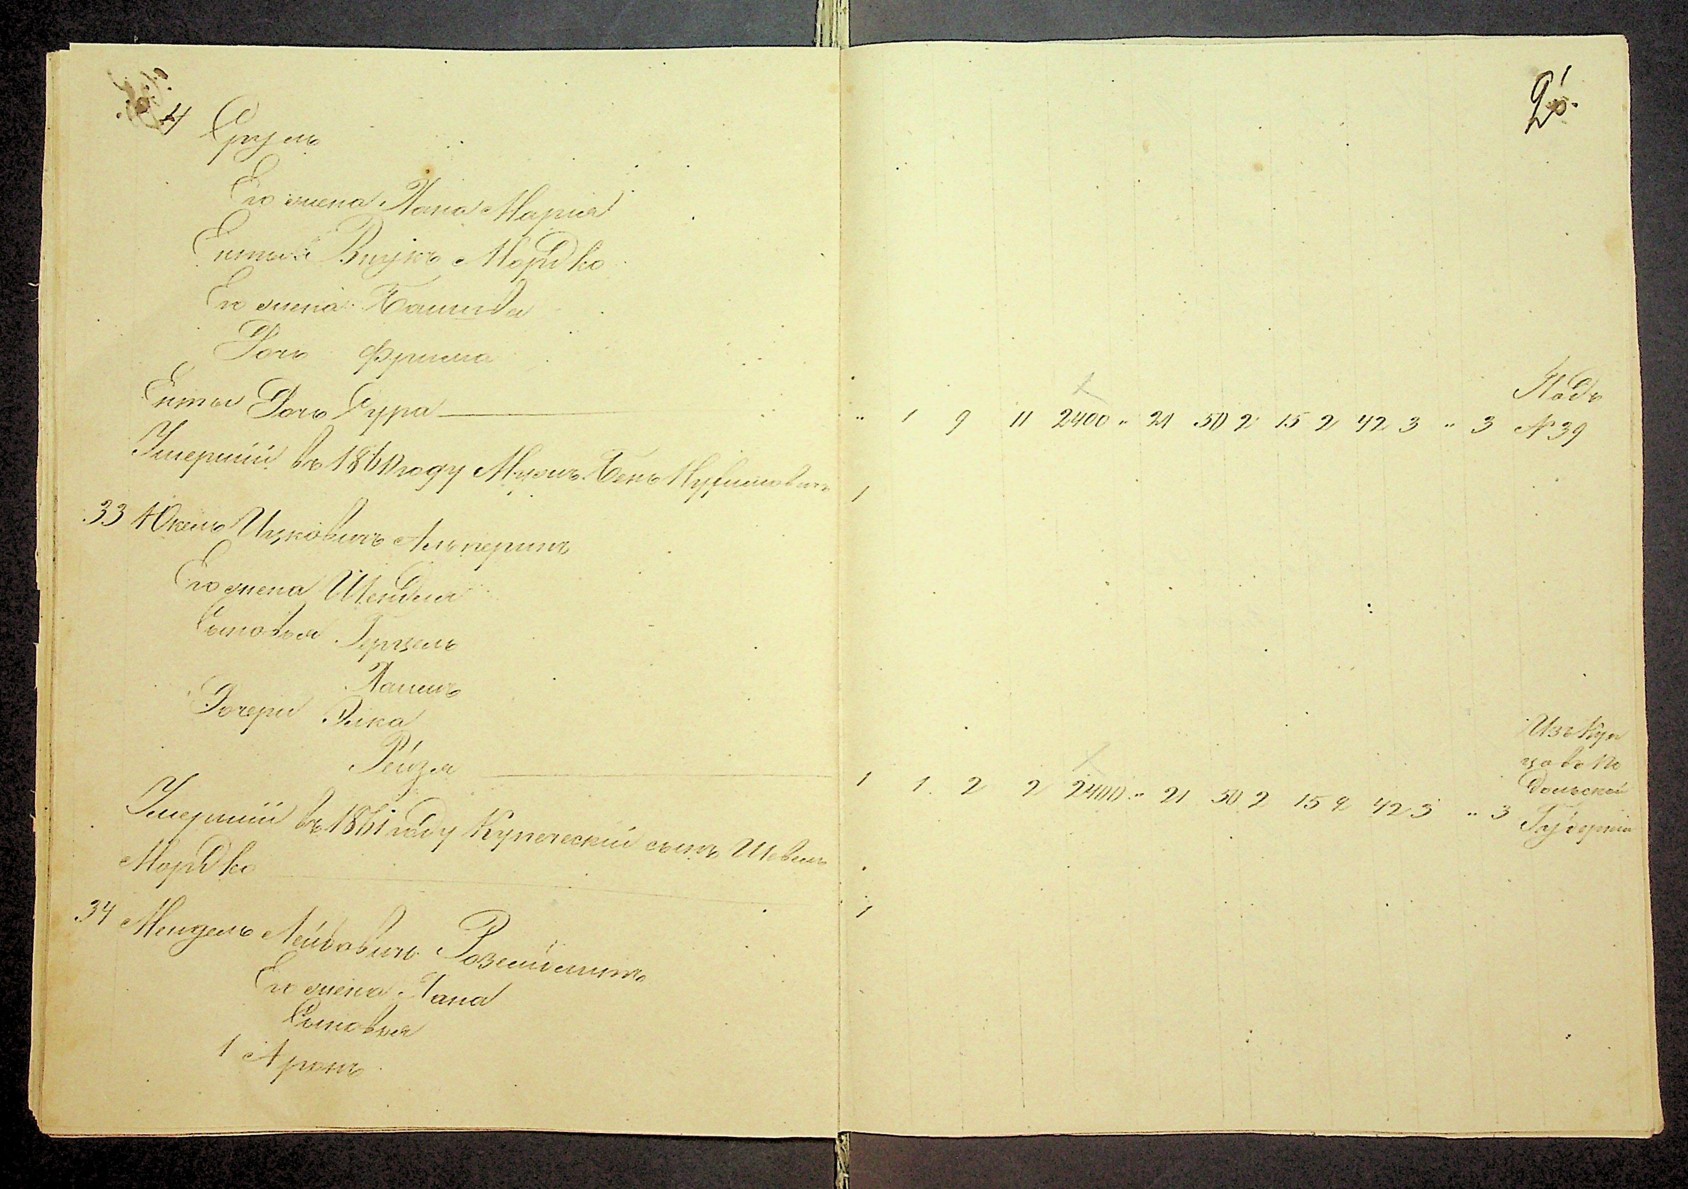 4 Сруль
Его жена Хана Мария
Внукъ Мордко
Его жена
Дочь Фрима
Енты Дочь Сура
Умершій въ 1861 году
33 Юкель Ицковичъ Альперинъ
Его жена Шендля
Сыновья Герцель
Хаимъ
Дочери Элка
Рейзя
Умершій въ 1861 году Купеческій сынъ
Мордко
34 Мендель Лейбовичъ
Его жена Хана
Сыновья
1 Аронъ
" 1 9 11 2400 " 21 50 2 15 2 42 3 " 3 № 39
1
1 1 2 2 2400 " 21 50 2 15 2 42 3 " 3
Изъ Куп
цовъ По
дольской
Губерніи
1